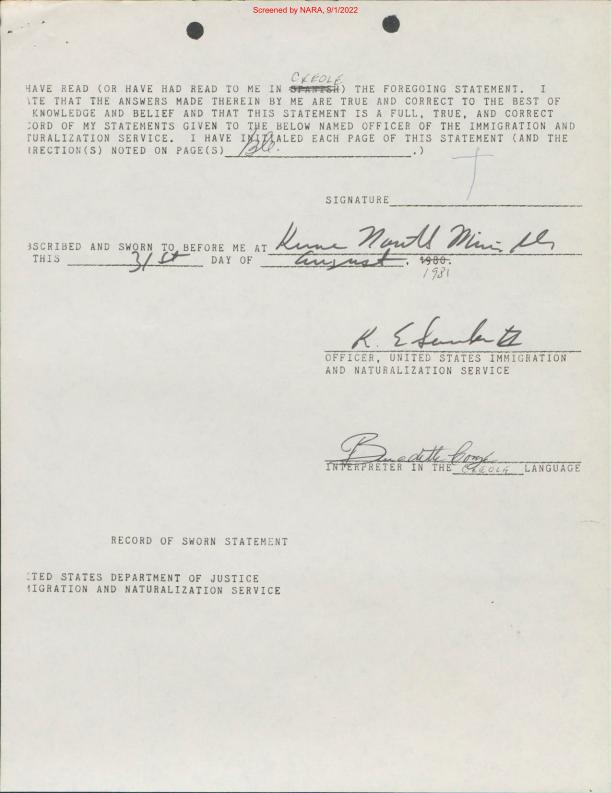 Screened by NARA, 9/1/2022
CREOLE
HAVE READ (OR HAVE HAD READ TO ME IN SPANISH) THE FOREGOING STATEMENT. I
TE THAT THE ANSWERS MADE THEREIN BY ME ARE TRUE AND CORRECT TO THE BEST OF
KNOWLEDGE AND BELIEF AND THAT THIS STATEMENT IS A FULL, TRUE, AND CORRECT
ORD OF MY STATEMENTS GIVEN TO THE BELOW NAMED OFFICER OF THE IMMIGRATION AND
TURALIZATION SERVICE. I HAVE INITIALED EACH PAGE OF THIS STATEMENT (AND THE
RRECTION(S) NOTED ON PAGE(S) .)
SIGNATURE
BSCRIBED AND SWORN TO BEFORE ME AT North
THIS 31st DAY OF August, 1980.
1981
OFFICER, UNITED STATES IMMIGRATION
AND NATURALIZATION SERVICE
INTERPRETER IN THE CREOLE LANGUAGE
RECORD OF SWORN STATEMENT
ITED STATES DEPARTMENT OF JUSTICE
MIGRATION AND NATURALIZATION SERVICE